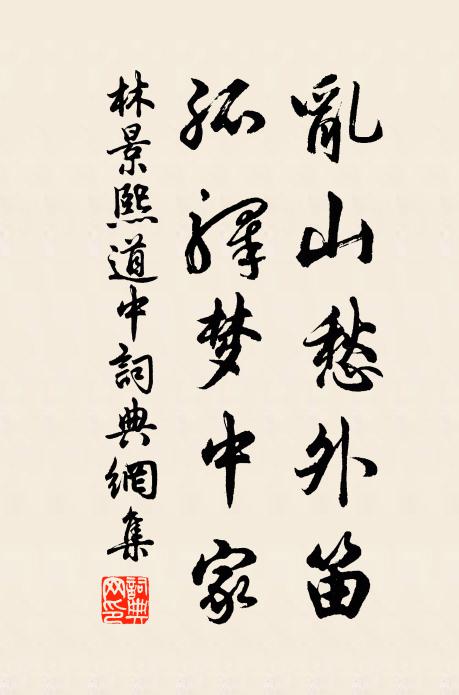 亂山愁外笛
孤驛梦中家
林景熙道中詞典網集
詞典網印